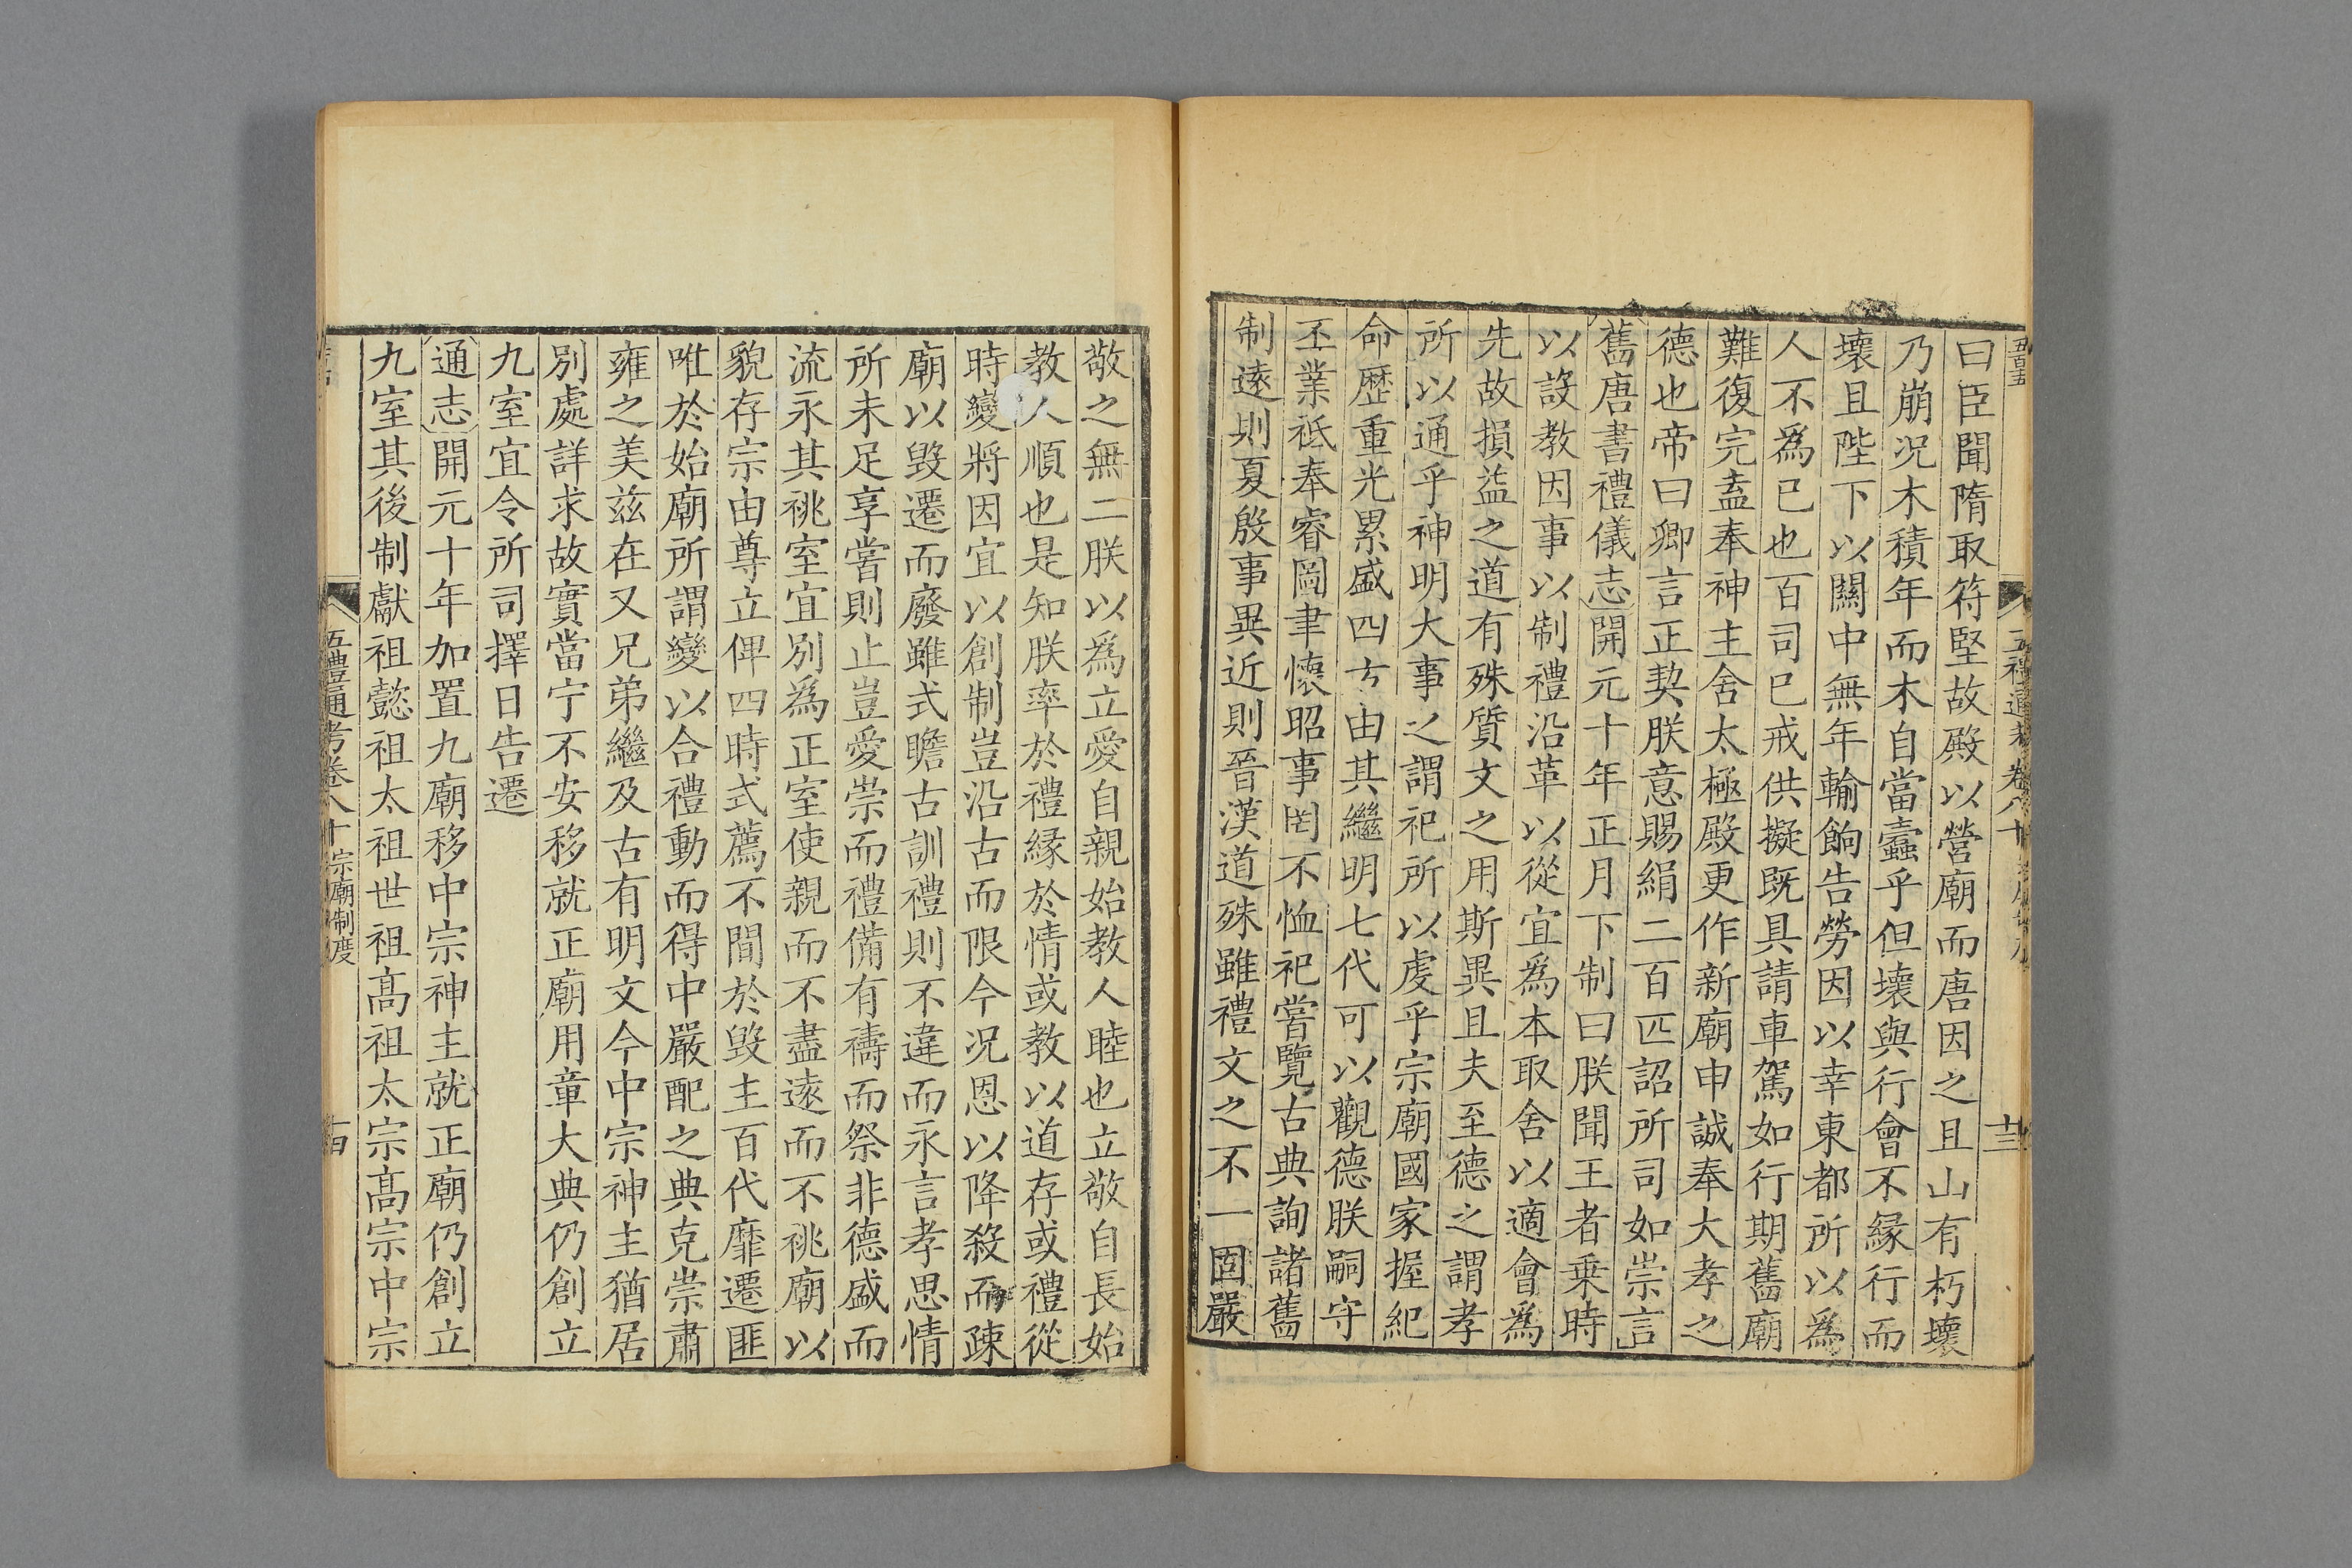 曰臣聞隋取符堅故殿以營廟而唐因之且山有朽壞
乃崩況木積年而木自當蠹乎但壞與行會不縁行而
壞且陛下以關中無年輸餉告勞因以幸東都所以為
人不為已也百司已戒供擬既具請車駕如行期舊廟
難復完盍奉神主舍太極殿更作新廟申誠奉大孝之
德也帝曰卿言正契朕意賜絹二百匹詔所司如崇言
舊唐書禮儀志開元十年正月下制曰朕聞王者乗時
以設教因事以制禮沿革以從宜為本取舍以適會為
先故損益之道有殊質文之用斯異且夫至德之謂孝
所以通乎神明大事之謂祀所以虔乎宗廟國家握紀
命歴重光累盛四方由其繼明七代可以觀德朕嗣守
丕業祗奉睿圖聿懷昭事罔不恤祀嘗覽古典詢諸舊
制遠則夏殷事異近則晉漢道殊雖禮文之不一固嚴
十三
敬之無二朕以為立愛自親始教人睦也立敬自長始
教人順也是知朕率於禮縁於情或教以道存或禮從
時變將因宜以創制豈沿古而限今况恩以降殺而疎
廟以毀遷而廢雖式瞻古訓禮則不違而永言孝思情
所未足享嘗則止豈愛崇而禮備有禱而祭非德盛而
流永其祧室宜別為正室使親而不盡遠而不祧廟以
貌存宗由尊立俾四時式薦不間於毀主百代靡遷匪
唯於始廟所謂變以合禮動而得中嚴配之典克崇肅
雍之美兹在又兄弟繼及古有明文今中宗神主猶居
別處詳求故實當宁不安移就正廟用章大典仍創立
九室宜令所司擇日告遷
通志開元十年加置九廟移中宗神主就正廟仍創立
九室其後制獻祖懿祖太祖世祖髙祖太宗髙宗中宗
五禮通考卷八十 宗廟制度
十四